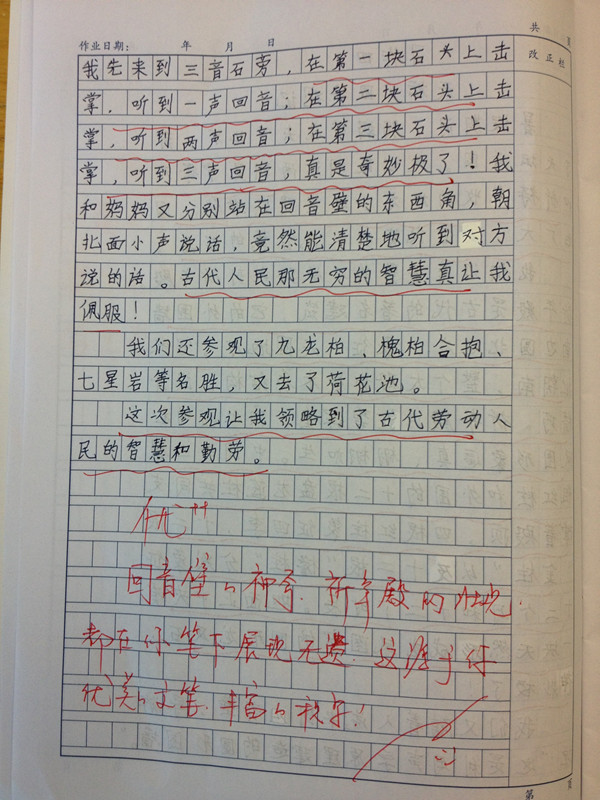 共 页
作业日期： 年 月 日
改正栏
我先来到三音石旁，在第一块石头上击
掌，听到一声回音；在第二块石头上击
掌，听到两声回音；在第三块石头上击
掌，听到三声回音；真是奇妙极了！我
和妈妈又分别站在回音壁的东西角，朝
北面小声说话，竟然能清楚地听到对方
说的话。古代人民那无穷的智慧真让我
佩服！
我们还参观了九龙柏、槐柏合抱、
七星岩等名胜，又去了荷花池。
这次参观让我领略到了古代劳动人
民的智慧和勤劳。
优++
回音壁的神奇．祈年殿的壮观．
都在你笔下展现无遗．这源于你
优美的文笔．丰富的积累！
第